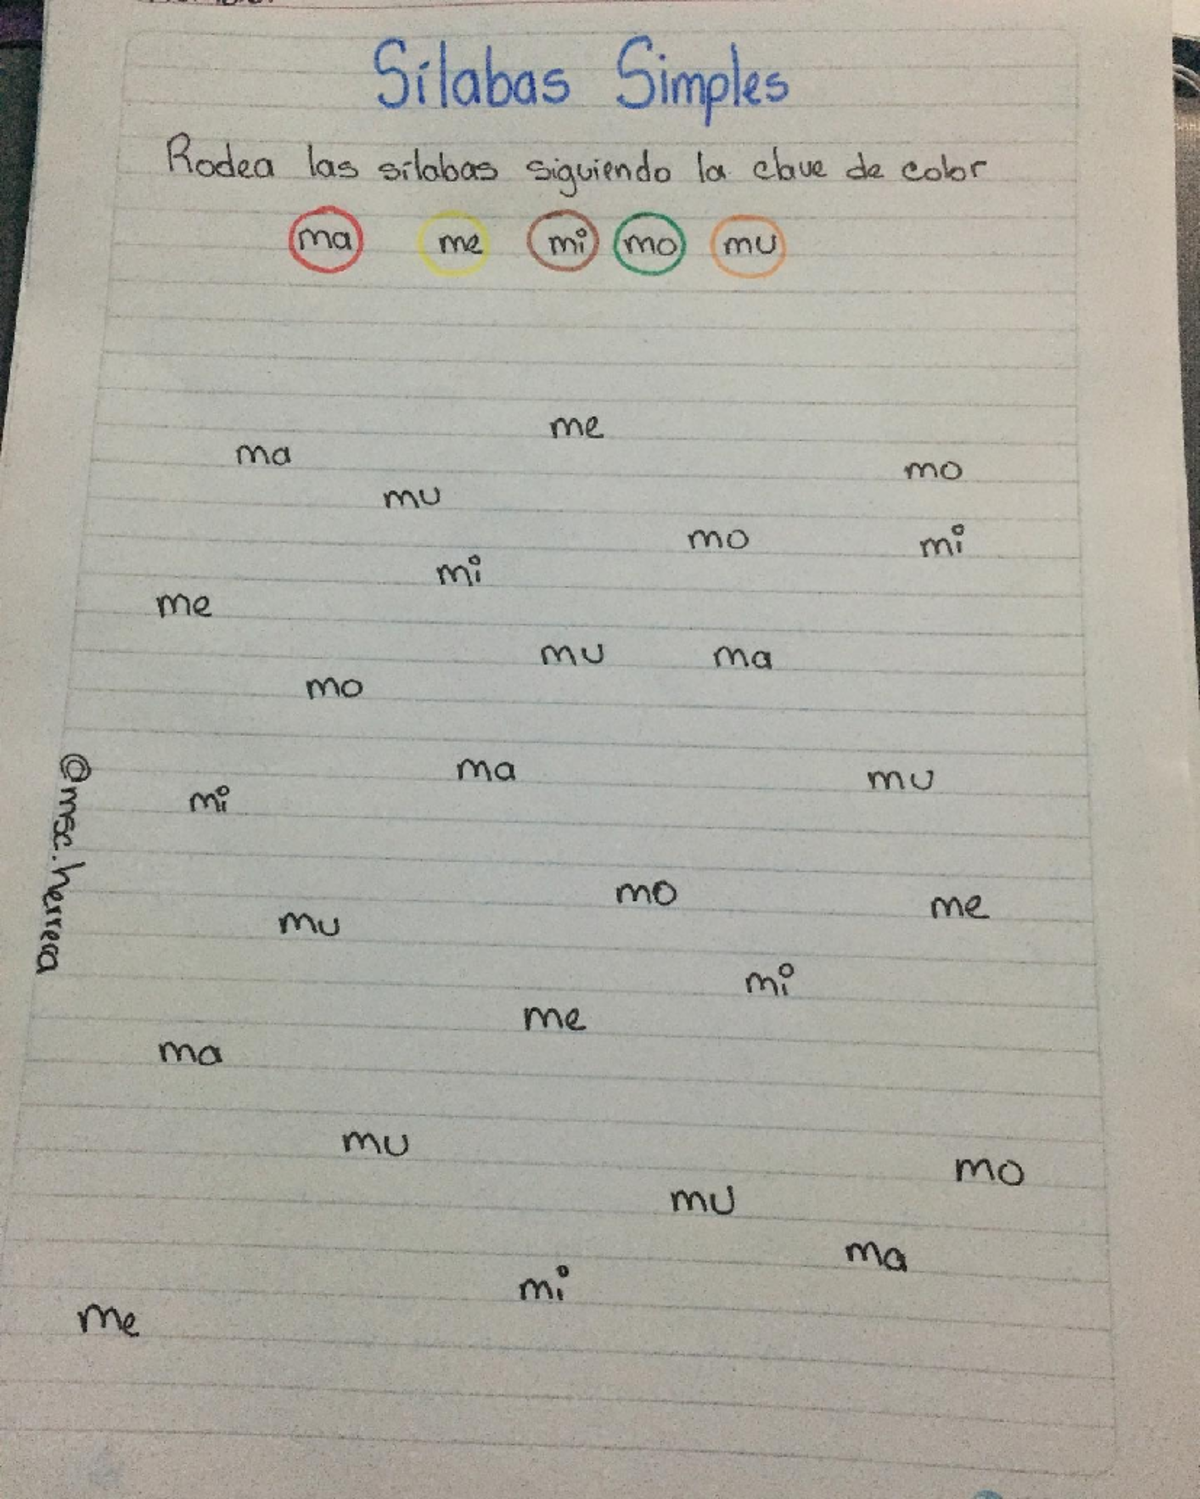 Sílabas Simples
Rodea las sílabas siguiendo la clave de color
ma me mi mo mu
me
ma
mo
mu
mo mi
mi
me
mu ma
mo
ma mu
mi
mo me
mu
mi
me
ma
mu
mo
mu
ma
mi
me
@msc.herrera